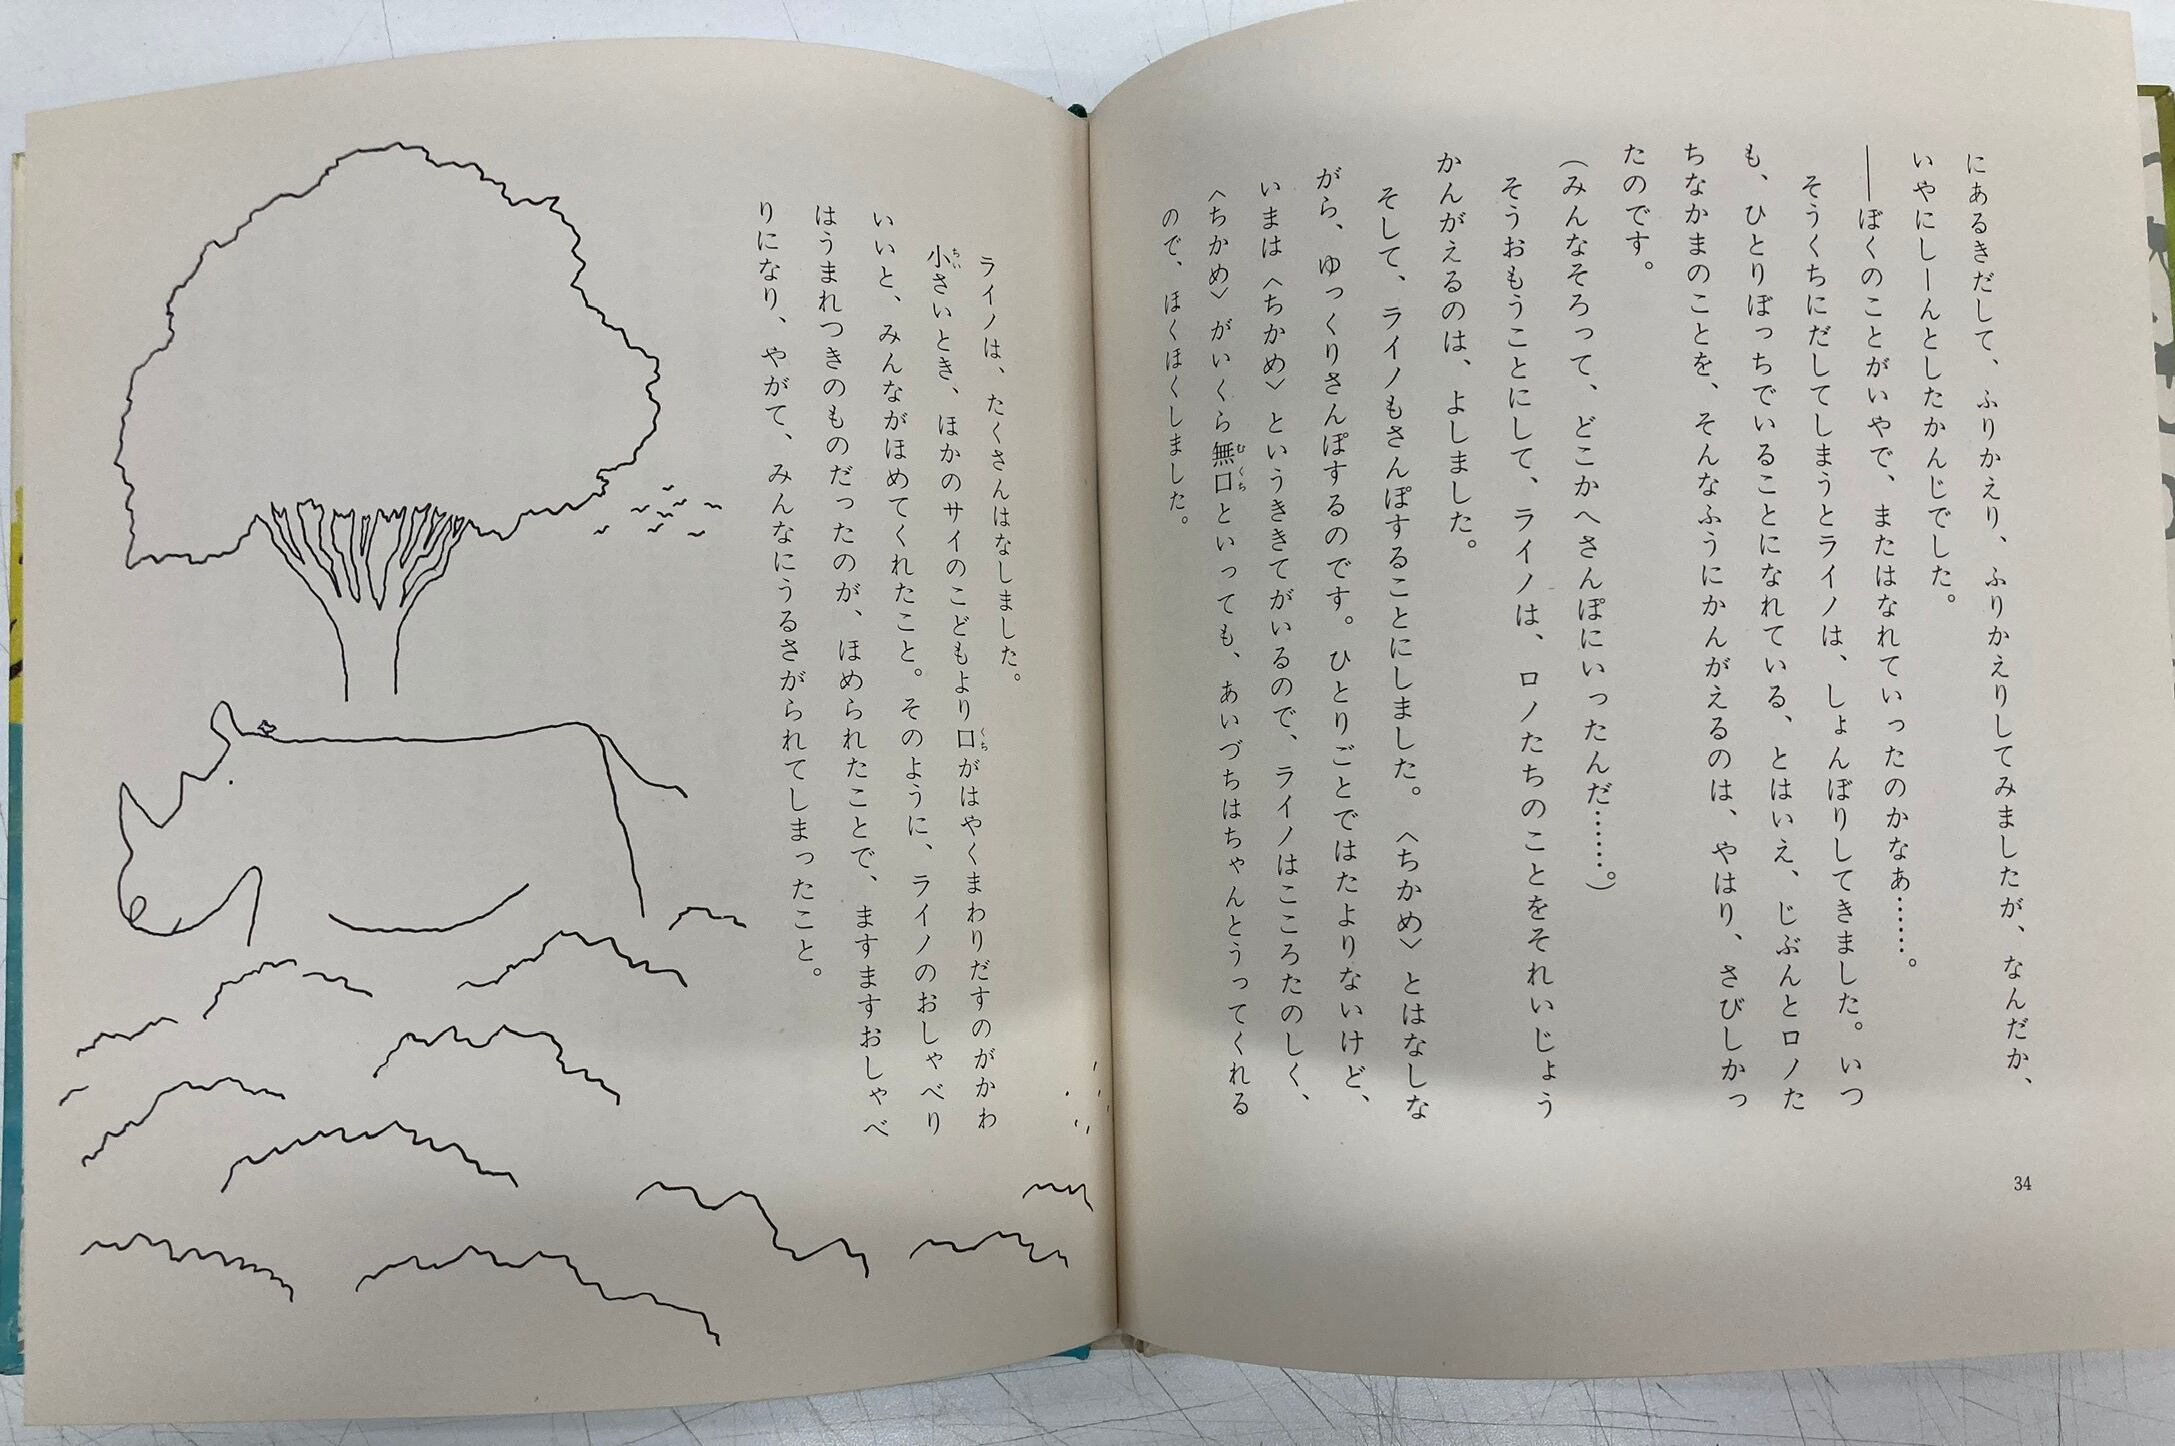 にあるきだして、ふりかえり、ふりかえりしてみましたが、なんだか、
いやにしーんとしたかんじでした。
――ぼくのことがいやで、またはなれていったのかなあ……。
そうくちにだしてしまうとライノは、しょんぼりしてきました。いつ
も、ひとりぼっちでいることになれている、とはいえ、じぶんとロノた
ちなかまのことを、そんなふうにかんがえるのは、やはり、さびしかっ
たのです。
(みんなそろって、どこかへさんぽにいったんだ……。)
そうおもうことにして、ライノは、ロノたちのことをそれいじょう
かんがえるのは、よしました。
そして、ライノもさんぽすることにしました。〈ちかめ〉とはなしな
がら、ゆっくりさんぽするのです。ひとりごとではたよりないけど、
いまは〈ちかめ〉というききてがいるので、ライノはこころたのしく、
〈ちかめ〉がいくら無口といっても、あいづちはちゃんとうってくれる
ので、ほくほくしました。
34
ライノは、たくさんはなしました。
小さいとき、ほかのサイのこどもより口がはやくまわりだすのがかわ
いいと、みんながほめてくれたこと。そのように、ライノのおしゃべり
はうまれつきのものだったのが、ほめられたことで、ますますおしゃべ
りになり、やがて、みんなにうるさがられてしまったこと。